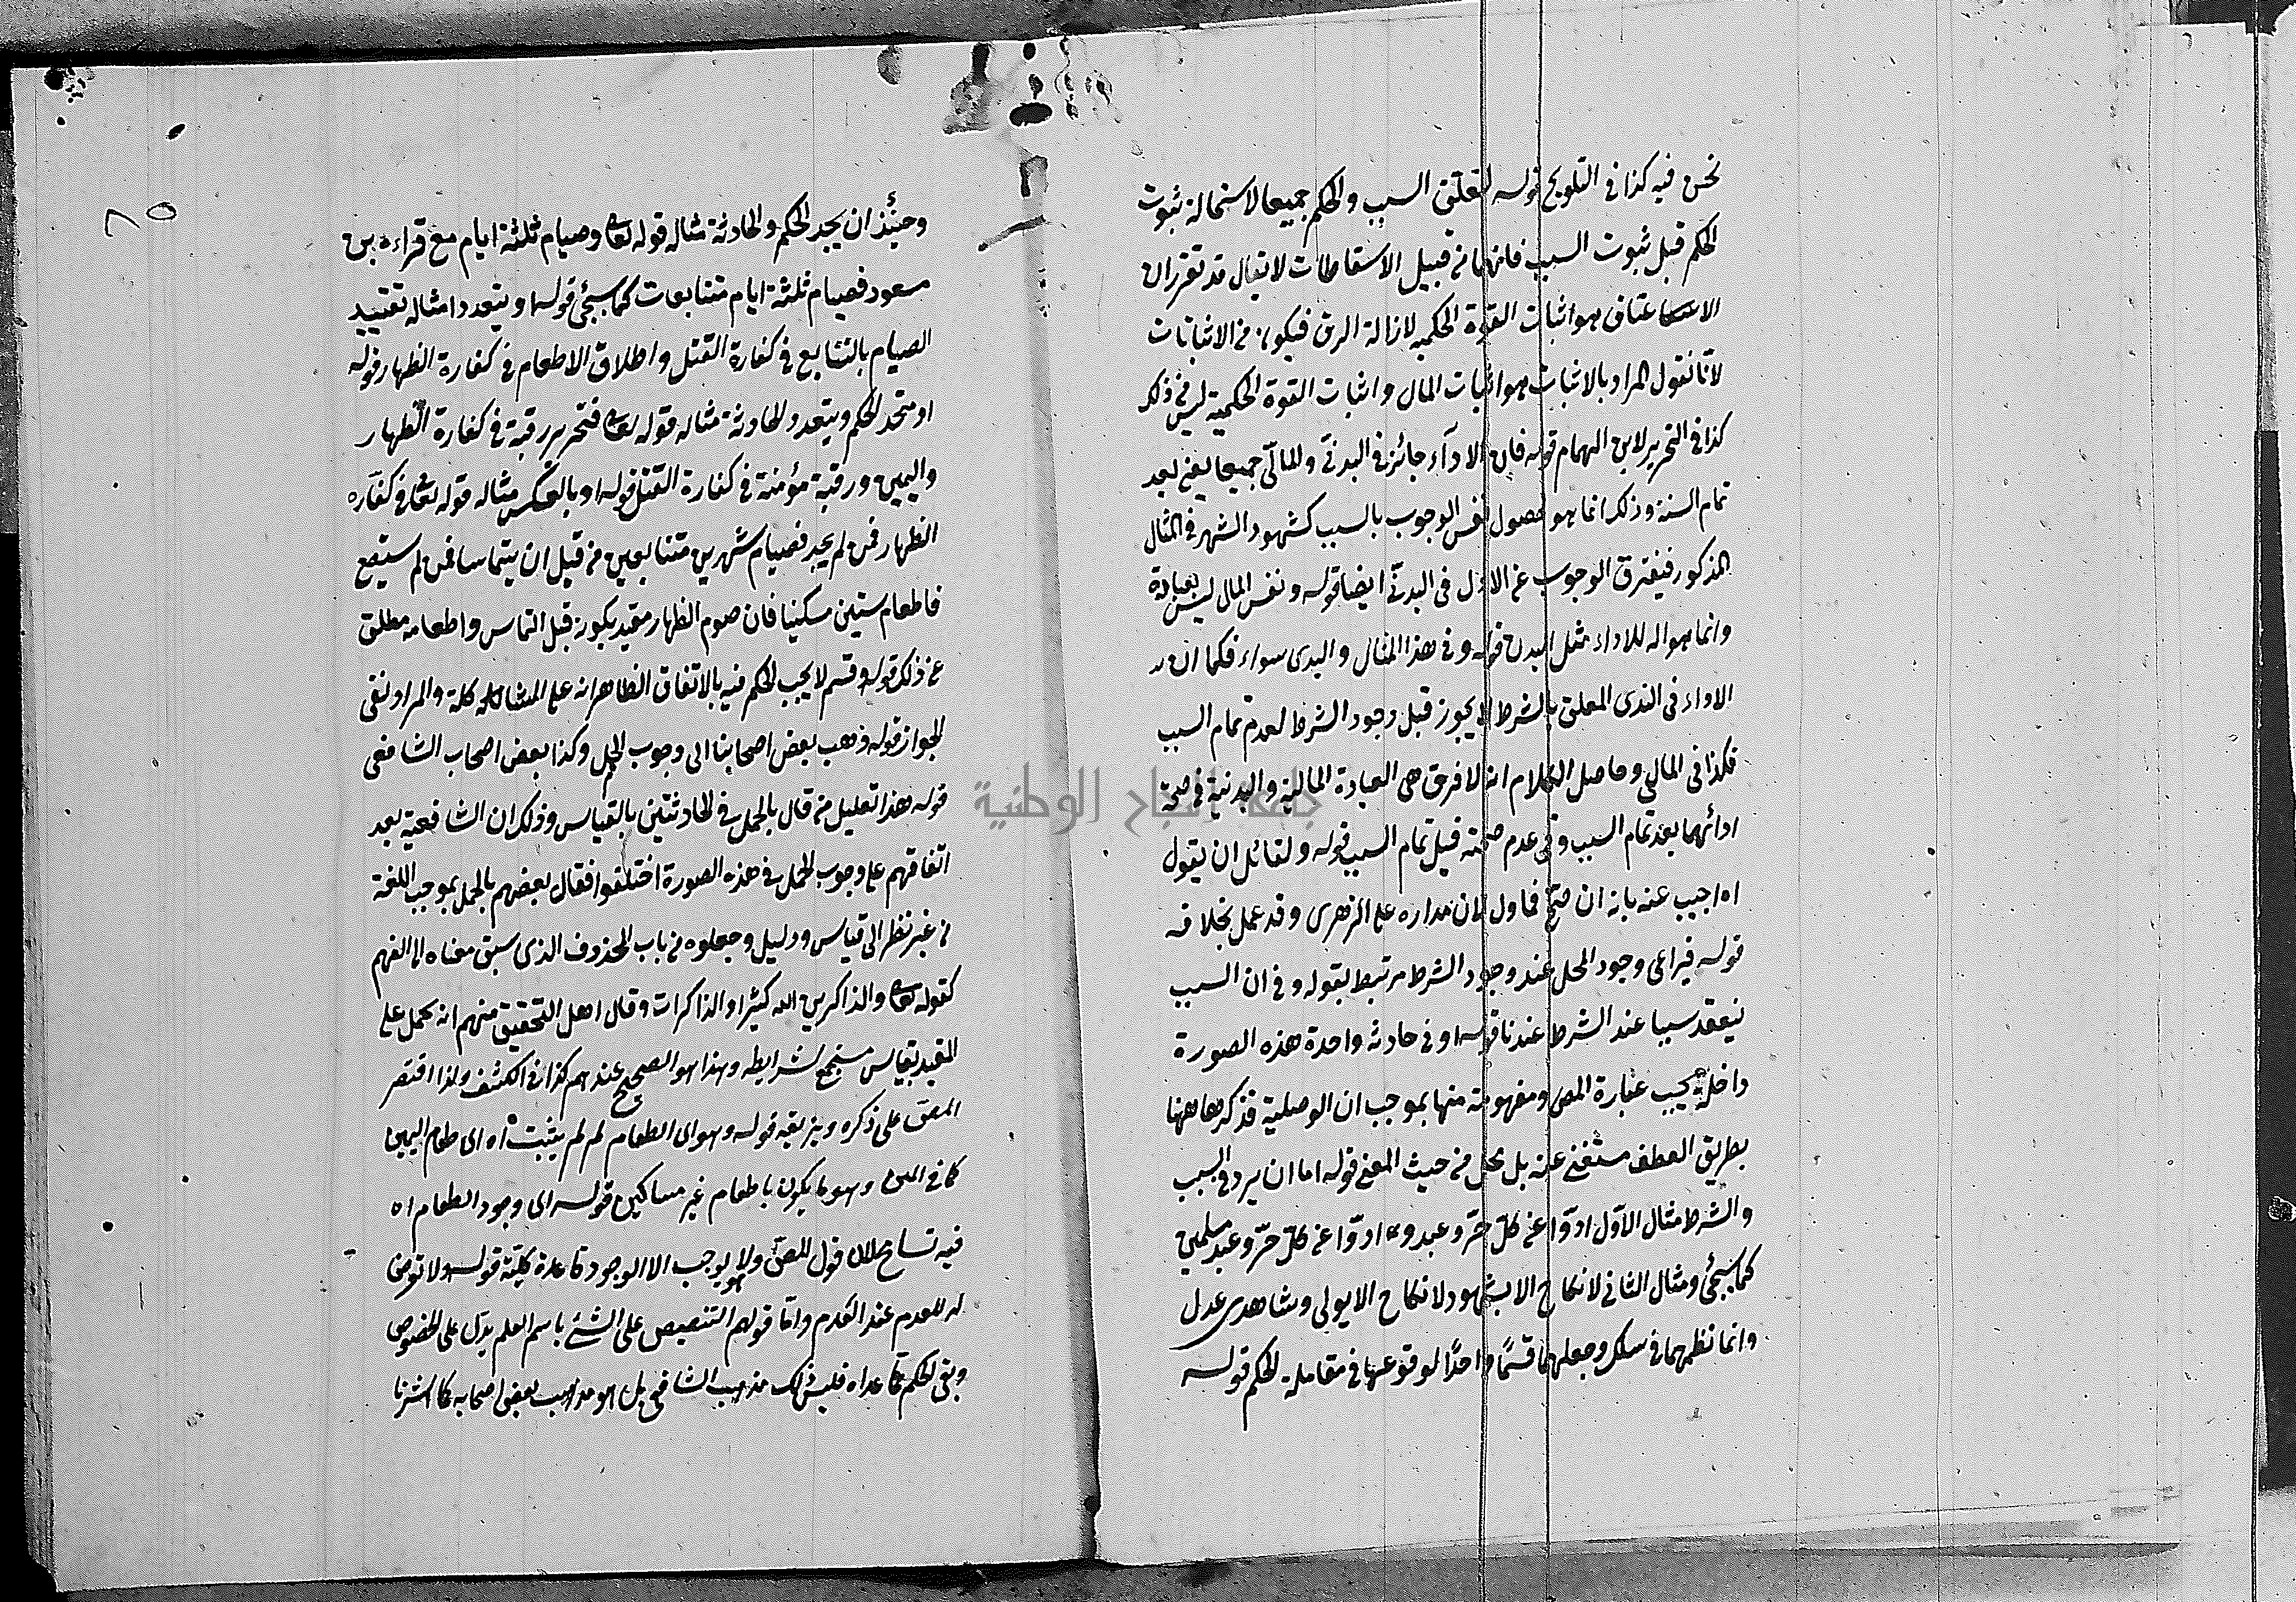 نحن فيه كذا في التلويح قوله لتعلق السبب والحكم جميعا لاستحالة ثبوت
الحكم قبل ثبوت السبب فانهما من قبيل الاسقاطات لا يقال قد تقرر ان
الاعتاق هو اثبات القوة الحكميه لازالة الرق فيكون من الاثباتات
لانا نقول المراد بالاثبات هو اثبات المال واثبات القوة الحكمية ليس من ذلك
كذا في التحرير لابن الهمام قوله فان الاداء جائز في البدني والمالي جميعا يعني بعد
تمام السنة وذلك انما هو حصول نفس الوجوب بالسبب كشهود الشهر في المثال
المذكور فيفترق الوجوب عن الاول في البدني ايضا قوله ونفس المال ليس بعبادة
وانما هو اله للاداء مثل البدن قوله وفي هذا المثال والبدى سواء فكما ان
الاداء في الندى المعلق بالشرط لا يجوز قبل وجود الشرط لعدم تمام السبب
فكذا في المالي وحاصل الكلام انه لا فرق هي العبادة المالية والبدنية في صحة
ادائهما بعد تمام السبب وفي عدم صحته قبل تمام السبب قوله ولقائل ان يقول
اه اجيب عنه بانه ان صح فماول لان مداره على الزهرى وقد عمل بخلافه
قوله فيراعى وجود المحل عند وجود الشرط مرتبط بقوله وفي ان السبب
ينعقد سببا عند الشرط عندنا قوله او في حادثه واحدة هذه الصورة
داخلة بحسب عبارة المص ومفهومة منها بموجب ان الوصلية فذكرها ههنا
بطريق العطف مستغنى عنه بل مخل من حيث المعنى قوله اما ان يرد في السبب
والشرط مثال الاول ادوا عن كل حر وعبد وادوا عن كل حر وعبد مسلمين
كما سيجئ ومثال الثاني لا نكاح الا بشهود لا نكاح الا بولي وشاهدى عدل
وانما نظمهما في سلك وجعلهما قسما واحدا لوقوعهما في مقاملة الحكم قوله
٨٥
وحينئذ ان يحد الحكم والحادثة مثاله قوله تعالى وصيام ثلثة ايام مع قراءة بن
مسعود فصيام ثلثة ايام متتابعات كما سيجئ قوله او يتعددا مثاله تقييد
الصيام بالتتابع في كفارة القتل واطلاق الاطعام في كفارة الظهار قوله
او متحد الحكم ويتعدد الحادثة مثاله قوله تعالى فتحرير رقبة في كفارة الظهار
واليمين ورقبة مؤمنة في كفارة القتل قوله او بالعكس مثاله قوله تعالى في كفاره
الظهار فمن لم يجد فصيام شهرين متتابعين من قبل ان يتماسا فمن لم يستطع
فاطعام ستين مسكينا فان صوم الظهار مقيد بكونه قبل التماس واطعامه مطلق
عن ذلك قوله وقسم لا يجب الحكم فيه بالاتفاق الظاهر انه على المشاكلة والمراد نفى
الجواز قوله وذهب بعض اصحابنا الى وجوب الحمل وكذا بعض اصحاب الشافعى
قوله هذا تعليل من قال بالحمل في الحادثتين بالقياس وذلك ان الشافعية بعد
اتفاقهم على وجوب الحمل في هذه الصورة اختلفوا فقال بعضهم بالحمل بموجب اللغة
من غير نظر الى قياس ودليل وجعلوه من باب المحذوف الذى سبق معناه الى الفهم
كقوله تعالى والذاكرين الله كثيرا والذاكرات وقال اهل التحقيق منهم انه يحمل على
المقيد بقياس مستجمع لشرايطه وهذا هو الصحيح عندهم كذا في الكشف ولذا اقتصر
المص على ذكره وبزيفه قوله وهو اى الطعام لم لم يثبت اه اى طعام اليمين
كما في المين وهو ما يكون باطعام غير مساكين قوله اى وجود الطعام اه
فيه تسامح فلان قول المص ولا يوجب الا الوجود قاعدة كلية قوله ولا تعرض
له للعدم عند العدم واما قولهم التنصيص على الشئ باسم العلم يدل على الخصوص
وبقى الحكم فاعداه فليس ذلك مذهب الشافعى بل هو مذهب بعض اصحابه كما اشرنا
جامعة النجاح الوطنية